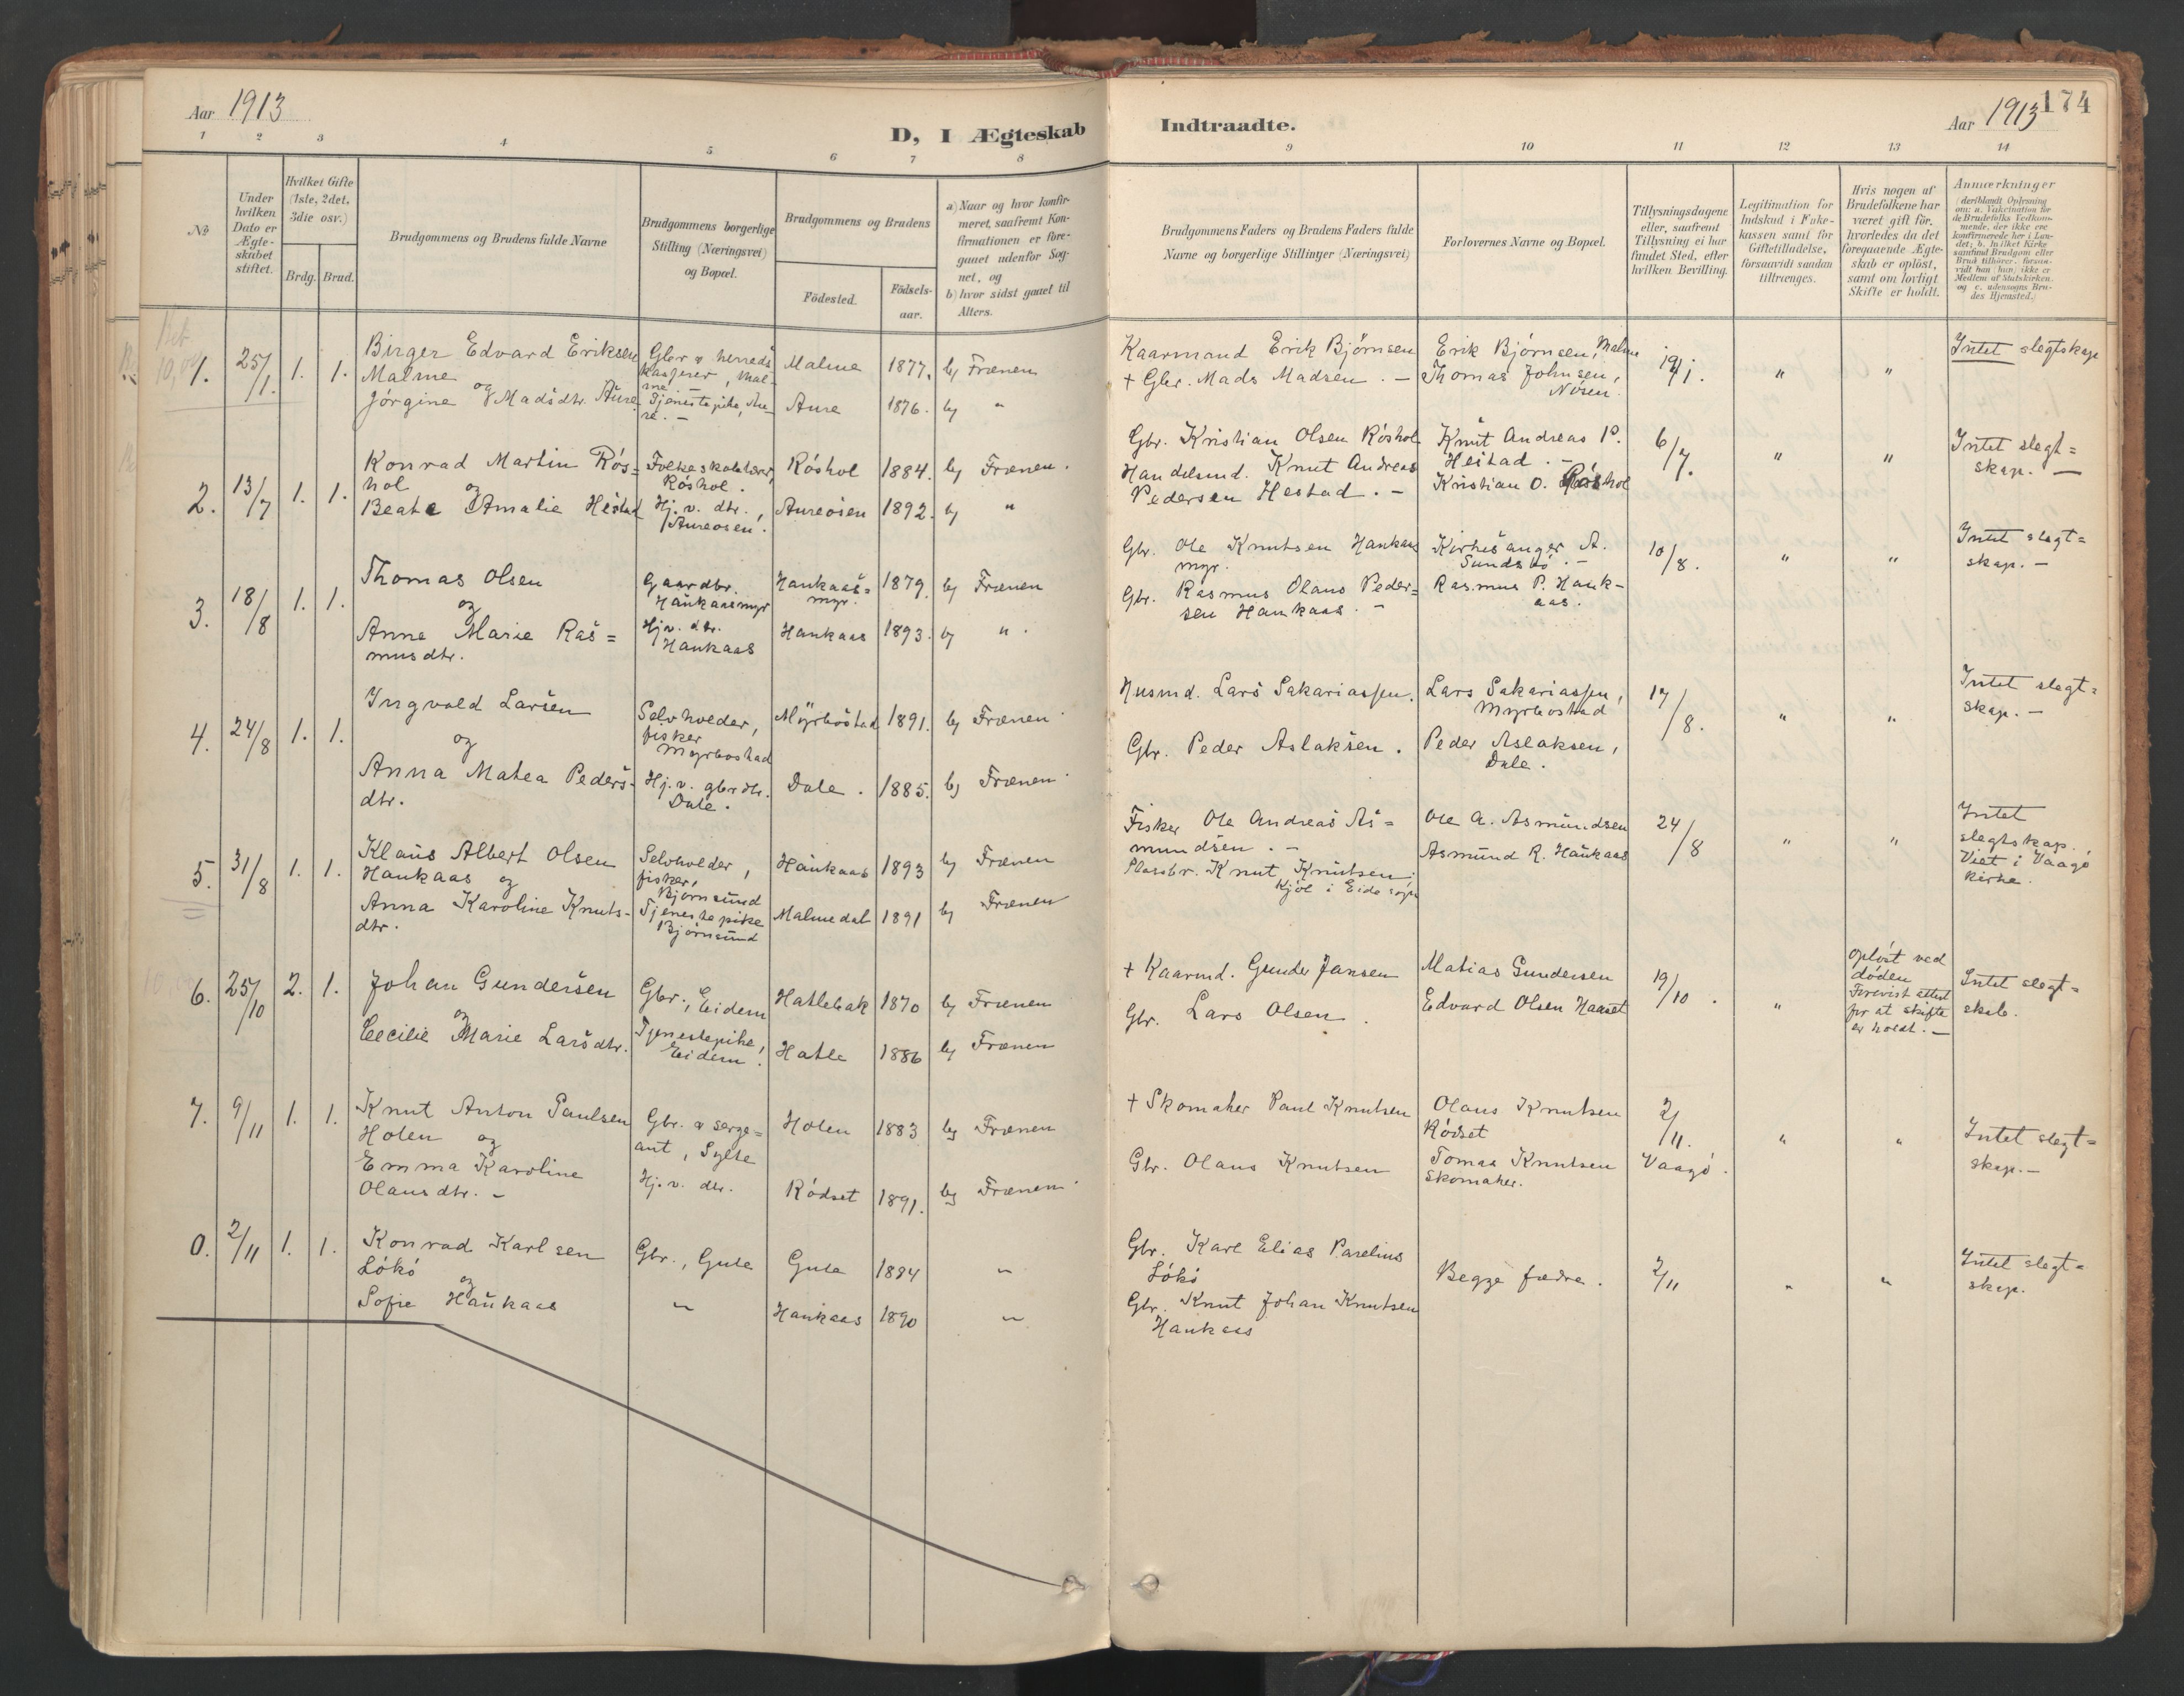 Aar 1913
D, I Ægteskab
Indtraadte.
Aar 1913
174
1 2 3 4 5 6 7 8
9 10 11 12 13 14
No
Under hvilken Dato er Ægteskabet stiftet.
Hvilket Gifte (1ste, 2det, 3die osv.)
Brdg. Brud.
Brudgommens og Brudens fulde Navne
Brudgommens borgerlige Stilling (Næringsvei) og Bopæl.
Brudgommens og Brudens
Födested.
Födsels-aar.
a) Naar og hvor konfirmeret, saafremt Konfirmationen er foregaaet udenfor Sognet, og
b) hvor sidst gaaet til Alters.
Brudgommens Faders og Brudens Faders fulde Navne og borgerlige Stillinger (Næringsvei)
Forlovernes Navne og Bopæl.
Tillysningsdagene eller, saafremt Tillysning ei har fundet Sted, efter hvilken Bevilling.
Legitimation for Indskud i Enkekassen samt for Giftetilladelse, forsaavidt saadan tiltrænges.
Hvis nogen af Brudefolkene har været gift för, hvorledes da det foregaaende Ægteskab er oplöst, samt om lovligt Skifte er holdt.
Anmærkninger
1. 25/1. 1. 1.
Birger Edvard Eriksen
Malme
og
Jørgine Madsdtr. Aure
Gbr & herreds
kasserer, Mal-
me. -
Tjenestepike, Au-
re. -
Malme 1877. b) Frænen
Aure 1876. b) "
Kaarmand Erik Bjørnsen
+ Gbr. Mads Madsen. -
Erik Bjørnsen, Malme
Thomas Johnsen,
Nøsen.
19/1. " "
Intet slegtskap
2. 13/7 1. 1.
Konrad Martin Rós=
hol og
Beate Amalie Hestad
Folkeskolelærer,
Róshol.
Hj. v. dtr.,
Aureosen.
Róshol 1884. b) Frænen.
Aureosen 1892. b) "
Gbr. Kristian Olsen Róshol
Handelsmd. Knut Andreas
Pedersen Hestad. -
Knut Andreas P.
Hestad. -
Kristian O. Róshol
6/7. " "
Intet slegt=
skap. -
3. 18/8 1. 1.
Thomas Olsen
og
Anne Marie Ras=
musdtr.
Gaardbr.
Haukaasmyr
Hj. v. dtr.
Haukaas
Haukaas=
myr. 1879. b) Frænen
Haukaas 1893. b) "
Gbr. Ole Knutsen Haukaas
myr.
Gbr. Rasmus Olaus Peder=
sen Haukaas. -
Kirkesanger A.
Sundsbó. -
Rasmus P. Hauk-
aas.
10/8. " "
Intet slegt=
skap. -
4. 24/8 1. 1.
Ingvald Larsen
og
Anna Matea Peders-
dtr.
Selvholder,
fisker
Myrbostad
Hj. v. gbrdtr.
Dale.
Myrbostad 1891. b) Frænen
Dale. 1885. b) Frænen
Husmd. Lars Sakariassen.
Gbr. Peder Aslaksen.
Lars Sakariassen,
Myrbostad
Peder Aslaksen,
Dale.
17/8. " "
Intet slegt=
skap. -
5. 31/8 1. 1.
Klaus Albert Olsen
Haukaas og
Anna Karoline Knuts-
dtr.
Selvholder,
fisker,
Bjørnsund
Tjenestepike
Bjørnsund
Haukaas 1893 b) Frænen
Malmedal 1891 b) Frænen
Fisker Ole Andreas As=
mundsen. -
Plassbr. Knut Knutsen,
Kjól i Eide sogn
Ole A. Asmundsen
Asmund R. Haukaas
24/8 " "
Intet
slegtskap.
Viet i Vaagó
kirke.
6. 25/10 2. 1.
Johan Gundersen
og
Cecilie Marie Larsdtr.
Gbr., Eidem
Tjenestepike,
Eidem.
Hatlebak 1870 b) Frænen
Hatle 1886 b) Frænen
+ Kaarmd. Gunder Jansen
Gbr. Lars Olsen.
Matias Gundersen
Edvard Olsen Haaset
19/10. "
Opløst ved
døden
Forevist attest
for at skifte
er holdt. -
Intet slegt=
skab.
7. 9/11 1. 1.
Knut Anton Paulsen
Holen og
Emma Karoline
Olausdtr. -
Gbr. & serge=
ant, Sylte
Hj. v. dtr.
Holen 1883 b) Frænen
Rødset 1891. b) Frænen
+ Skomaker Paul Knutsen
Gbr. Olaus Knutsen
Olaus Knutsen
Rødset
Tomas Knutsen
skomaker.
2/11.
Vaagó. " "
Intet slegt=
skap. -
0. 2/11 1. 1.
Konrad Karlsen
Lókó
og
Sofie Haukaas
Gbr., Gule
"
Gule 1884 "
Haukaas 1890 "
Gbr. Karl Elias Parelius
Lókó
Gbr. Knut Johan Knutsen
Haukaas
Begge fædre.
2/11 " "
Intet slegt=
skap.